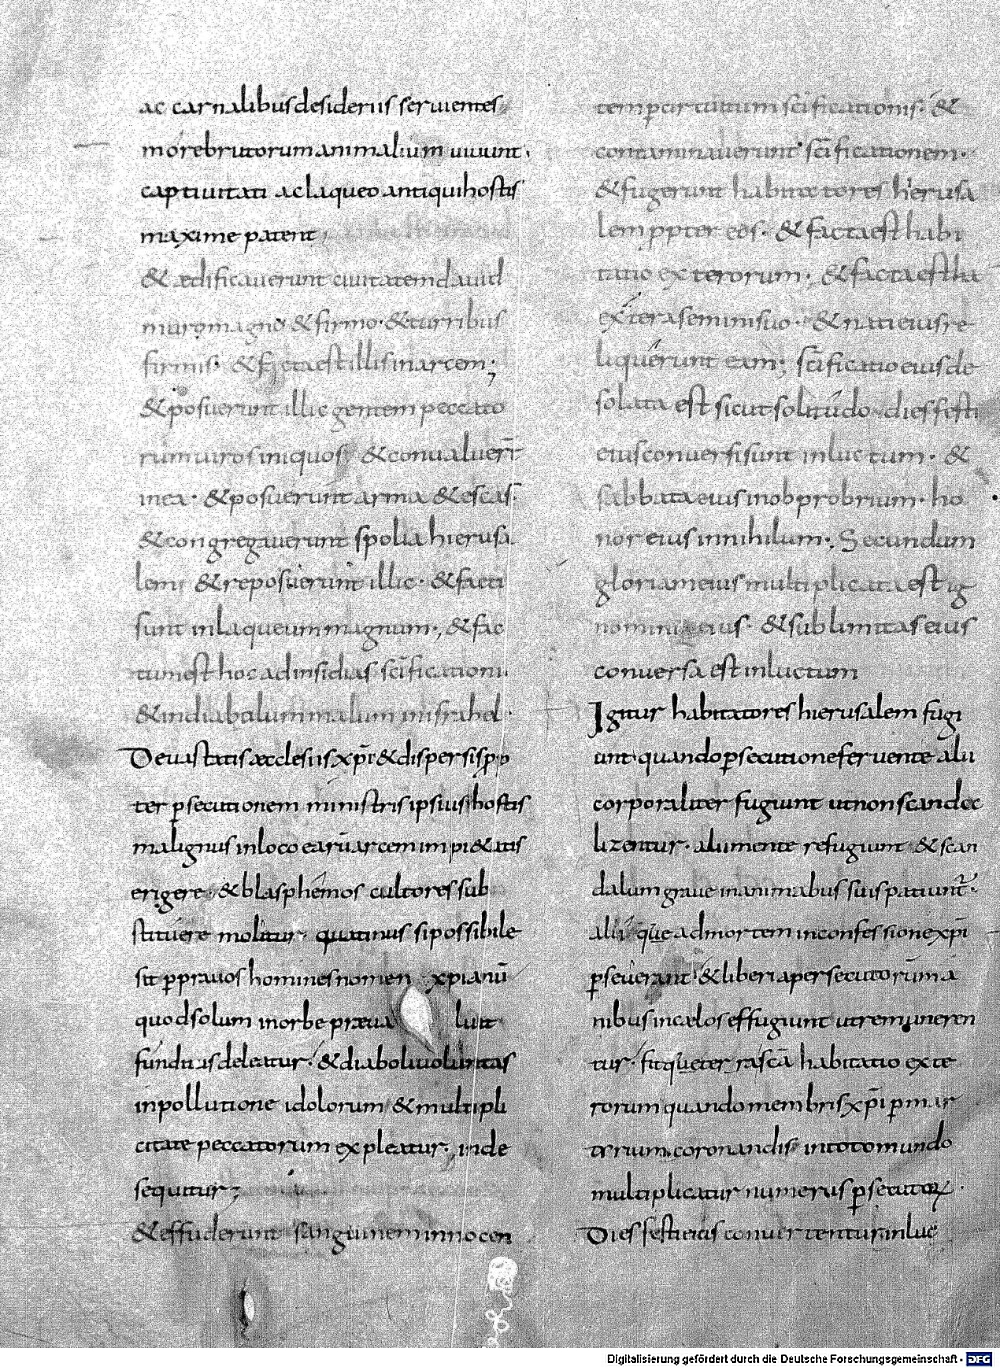 ac carnalibus desideriis seruientes
more brutorum animalium uiuunt.
captiuitati ac laqueo antiqui hostis
maxime patent;
& ædificauerunt ciuitatem dauid
muro magno & firmo· & turribus
firmis· & facta est illis in arcem;
& posuerunt illic gentem peccato
rum uiros iniquos & conualuer̅
in ea· & posuerunt arma & escas·
& congregauerunt spolia hierusa
lem & reposuerunt illic· & facti
sunt in laqueum magnum·, & fac
tum est hoc ad insidias sc̅ificationi
& in diabolum malum in israhel·
Deuastatis æcclesiis xp̅i & dispersis prop
ter persecutionem ministris ipsius hostis
malignus in loco earū arcem impi&atis
erigere & blasphemos cultores sub
stituere molitur· quatinus si possibile
sit p̲ prauos homines nomen xpianū
quod solum in orbe præua luit
funditus deleatur· & diaboli uoluntas
in pollutione idolorum & multipli
citate peccatorum expleatur· inde
sequitur;
& effuderunt sanguinem innocen
tem per circuitum sc̅ificationis· &
contaminauerunt sc̅ificationem·
& fugerunt habitatores hierusa
lem ppter eos· & facta est habi
tatio exterorum; & facta est
extera semini suo· & nati eius re
liquerunt eam; sc̅ificatio eius de
solata est sicut solitudo dies festi
eius conuersi sunt in luctum· &
sabbata eius in obprobrium· ho
nor eius in nihilum·, Secundum
gloriam eius multiplicata est ig
nominia eius· & sublimitas eius
conuersa est in luctum
Igitur habitatores hierusalem fugi
unt quando p̲secutione feruente alii
corporaliter fugiunt ut non scanda
lizentur· alii mente refugiunt & scan
dalum graue in animabus suis patiunt̅·
alii q̅ue ad mortem in confessione xp̅i
p̲seuerant & liberi a persecutorum ma
nibus in cælos effugiunt ut remuneren
tur· fitque terrascā habitatio exte
rorum quando membris xp̅i p̲ mar
tirium coronandis in toto mundo
multiplicatur numerus p̲secutoꝝ·
Dies festi eius conuertentur in luc
Digitalisierung gefördert durch die Deutsche Forschungsgemeinschaft - DFG